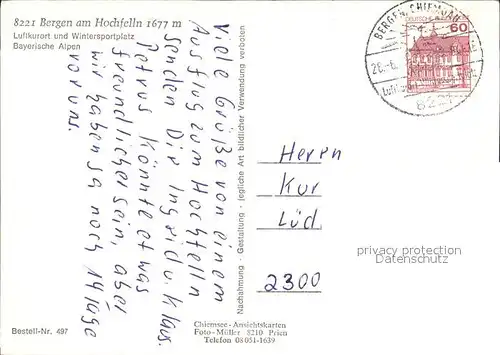 8221 Bergen am Hochfelln 1677 m
Luftkurort und Wintersportplatz
Bayerische Alpen
Viele Grüße von einem
Ausflug zum Hochfelln
senden Dir Ingrid u. Klaus.
Petrus könnte etwas
freundlicher sein, aber
wir haben ja noch 14 Tage
vor uns.
Nachahmung - Gestaltung - jegliche Art bildlicher Verwendung verboten
BERGEN, CHIEMGAU
DEUTSCHE BUNDESPOST
60
8221
Herrn
Kur
Lüd
2300
privacy protection
Datenschutz
Bestell-Nr. 497
Chiemsee-Ansichtskarten
Foto-Müller 8210 Prien
Telefon 08051-1639